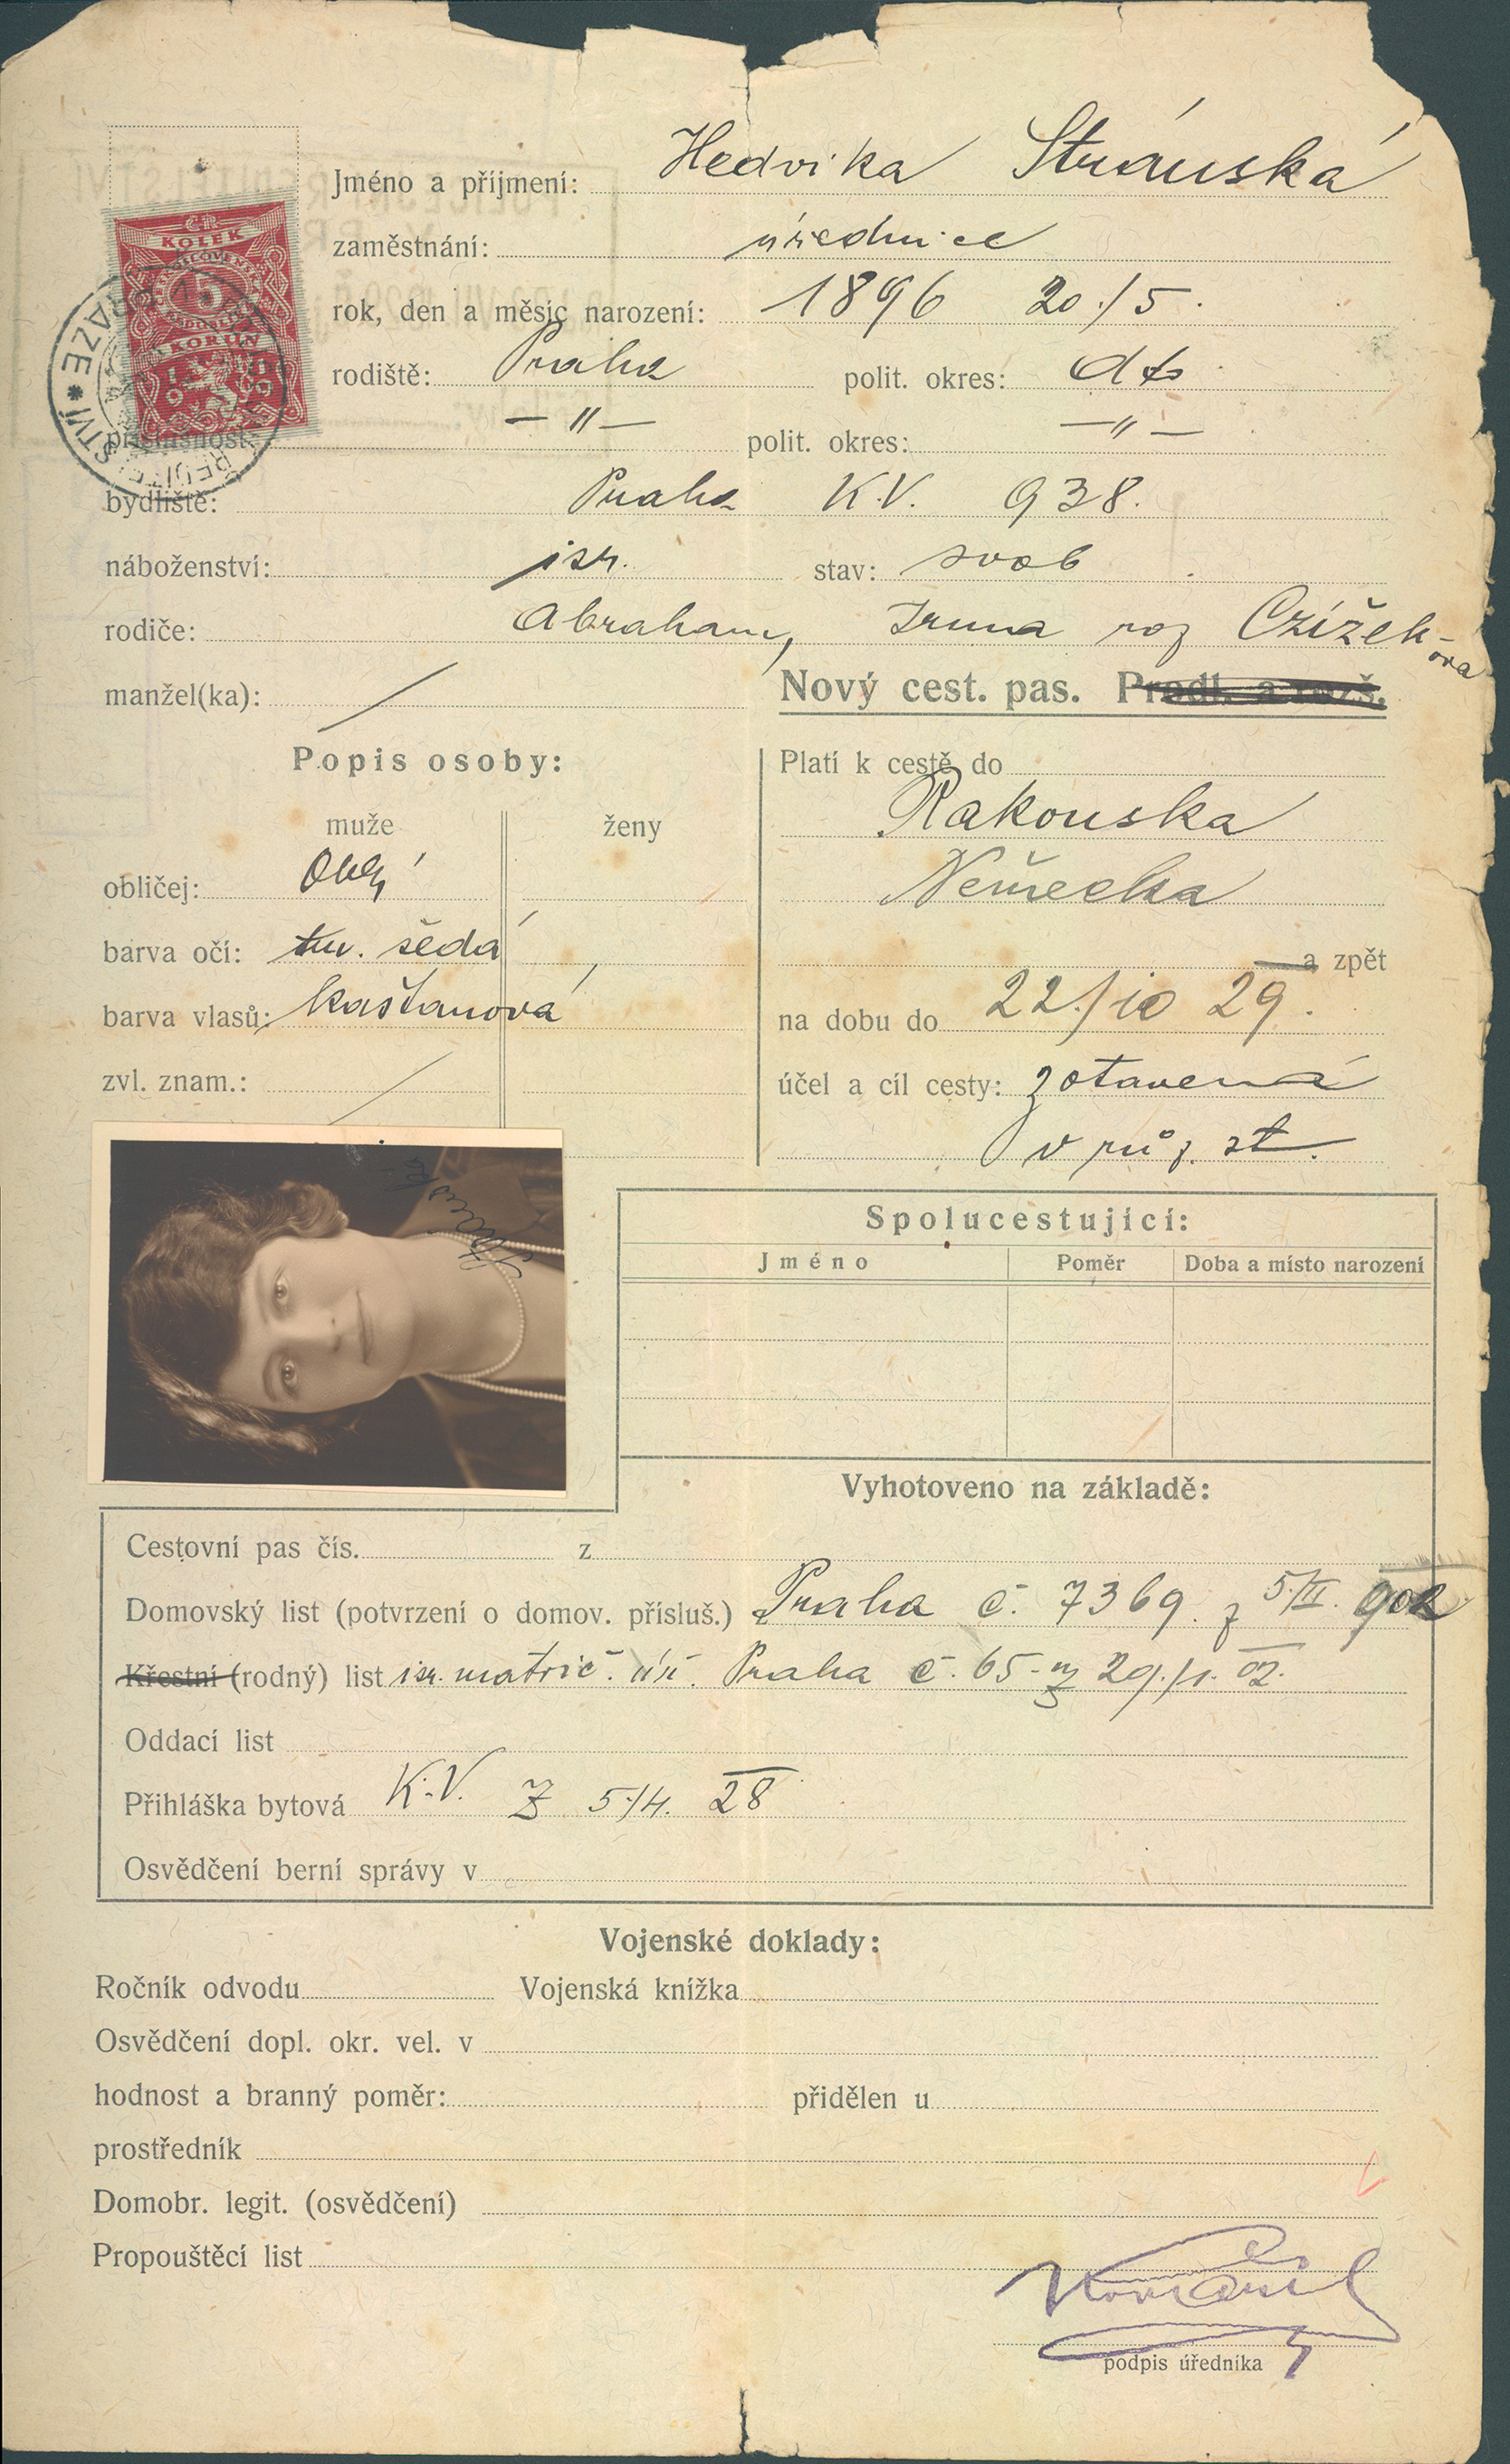 Jméno a příjmení: Hedvika Stránská
zaměstnání: úřednice
rok, den a měsíc narození: 1896 20./5.
rodiště: Praha polit. okres: dto
příslušnost: —"— polit. okres: —"—
bydliště: Praha K.V. 938.
náboženství: isr. stav: svob
rodiče: Abraham, Irma roz Czížek-
ova
manžel(ka): /
Nový cest. pas. Prodl. a rozš.
Popis osoby:
muže ženy
obličej: Oblý
barva očí: tm. šedá
barva vlasů: kaštanová
zvl. znam.: /
Platí k cestě do
Rakouska
Německa
a zpět
na dobu do 22./10 29.
účel a cíl cesty: zotavená
v růz. st.
KOLEK
5
KORUN
Stránská
Spolucestující:
Jméno Poměr Doba a místo narození
Vyhotoveno na základě:
Cestovní pas čís. z
Domovský list (potvrzení o domov. přísluš.) Praha č. 7369. z 902
Křestní (rodný) list isr. matrič. úř. Praha č. 65 z 29./1. 02.
Oddací list
Přihláška bytová K.V. z 5./4. 28
Osvědčení berní správy v
Vojenské doklady:
Ročník odvodu Vojenská knížka
Osvědčení dopl. okr. vel. v
hodnost a branný poměr: přidělen u
prostředník
Domobr. legit. (osvědčení)
Propouštěcí list
podpis úředníka